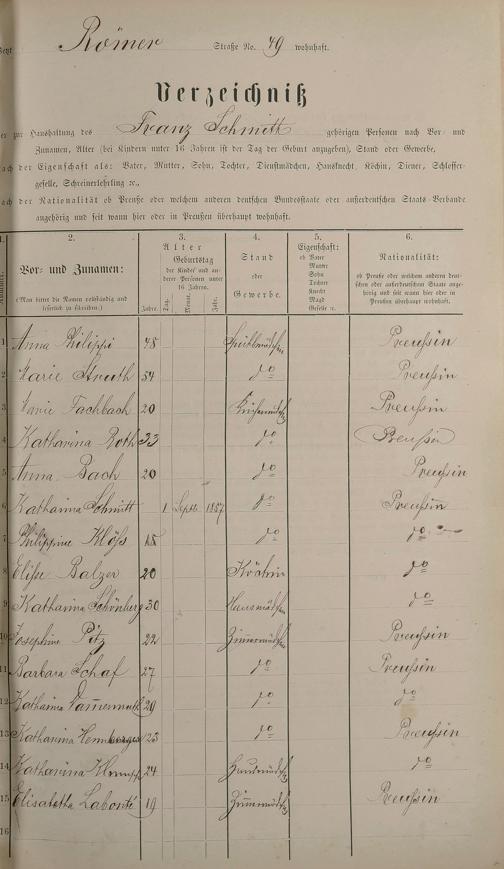 Römer Straße No. 49 wohnhaft.
Verzeichniß
zur Haushaltung des Franz Schmitt gehörigen Personen nach Vor- und
Zunamen, Alter (bei Kindern unter 16 Jahren ist der Tag der Geburt anzugeben), Stand oder Gewerbe,
nach der Eigenschaft als: Vater, Mutter, Sohn, Tochter, Dienstmädchen, Hausknecht, Köchin, Diener, Schlosser-
geselle, Schreinerlehrling ꝛc.,
nach der Nationalität ob Preuße oder welchem anderen deutschen Bundesstaate oder außerdeutschen Staats-Verbande
angehörig und seit wann hier oder in Preußen überhaupt wohnhaft.
1. 2. 3. 4. 5. 6.
Nummer. Vor- und Zunamen:
(Man bittet die Namen vollständig und
leserlich zu schreiben.)
Alter
Geburtstag
der Kinder und an-
derer Personen unter
16 Jahren.
Jahre. Tag. Monat. Jahr.
Stand
oder
Gewerbe.
Eigenschaft:
ob Vater
Mutter
Sohn
Tochter
Knecht
Magd
Geselle ꝛc.
Nationalität:
ob Preuße oder welchem anderen deut-
schen oder außerdeutschen Staate ange-
hörig und seit wann hier oder in
Preußen überhaupt wohnhaft.
1 Anna Philippi 48 Preussin
2 Marie 54 do Preussin
3 Marie Fachbach 20 Preussin
4 Katharina Roth 33 do Preussin
5 Anna Bach 20 do Preussin
6 Katharina Schmitt 1 Sept. 1857 do Preussin
7 Philippine Klöss 18 do do
8 Elise Balzer 20 Köchin do
9 Katharina Schönberg 30 Hausmädchen do
10 Josephine Pitz 22 Zimmermädchen Preussin
11 Barbara Schaf 27 do Preussin
12 Katharina 29 do do
13 Katharina 23 do Preussin
14 Katharina 24 do
15 Elisabetha Labonté 19 Preussin
16